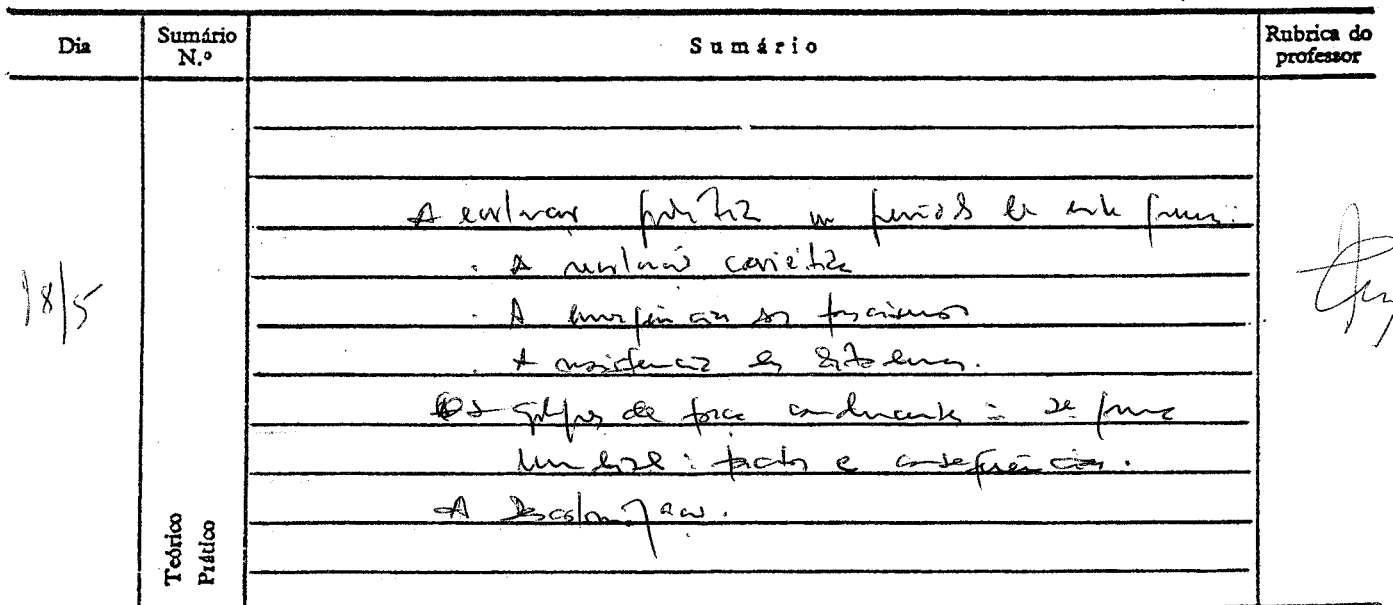 Dia
Sumário N.º
Sumário
Rubrica do professor
18/5
A evolução política no período de entre guerras:
. A revolução soviética
. A emergência dos fascismos
. A resistência
Os golpes de força conducentes à 2ª guerra
mundial: factos e consequências.
A Descolonização.
Teórico
Prático